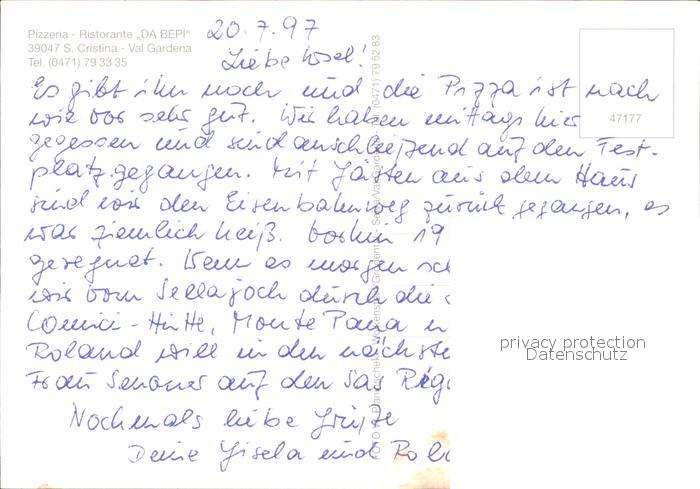 Pizzeria - Ristorante „DA BEPI"
39047 S. Cristina - Val Gardena
Tel. (0471) 79 33 35
20.7.97
Liebe !
Es gibt ihn noch und die Pizza ist nach
wie vor sehr gut. Wir haben mittags hier
gegessen und sind anschließend auf den Fest-
platz gegangen. Mit Gästen aus dem Haus
sind wir den Eisenbahnweg zurück gegangen, es
war ziemlich heiß. Vorhin
geregnet. Wenn es morgen
wir vom Sellajoch durch die
Comici-Hütte, Monte Pana
Roland will in den nächste
Frau Senoner auf den Sas
Nochmals liebe Grüße
Deine Gisela und
47177
privacy protection
Datenschutz